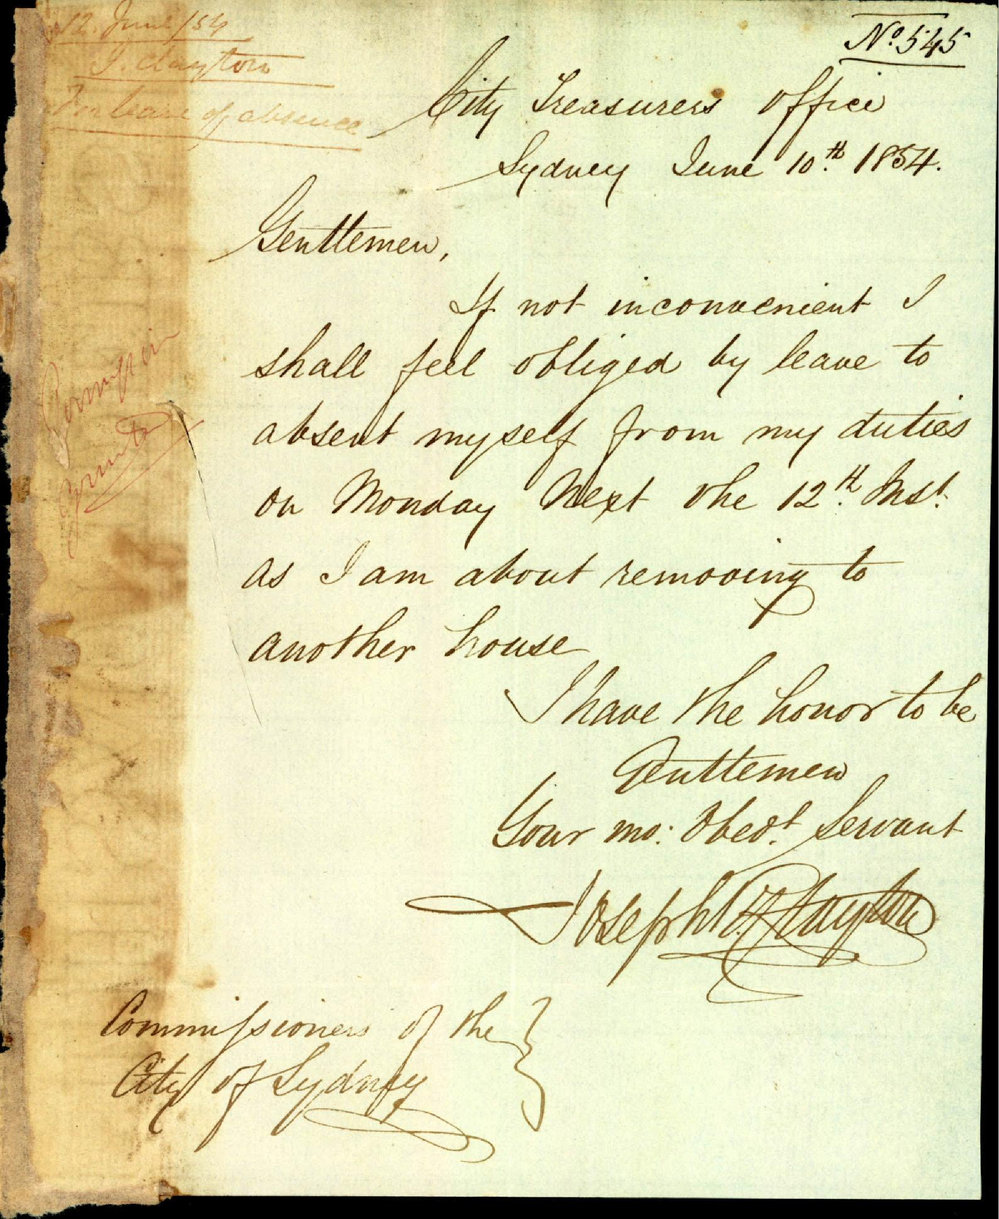 12. June /54
J. Clayton
For leave of absence
No. 545
City Treasurers Office
Sydney June 10th. 1854.
Gentlemen,
If not inconvenient I
shall feel obliged by leave to
absent myself from my duties
on Monday Next the 12th. Inst.
as I am about removing to
another house
I have the honor to be
Gentlemen
Your mo: Obedt. Servant
Joseph Clayton
Commissioners of the
City of Sydney